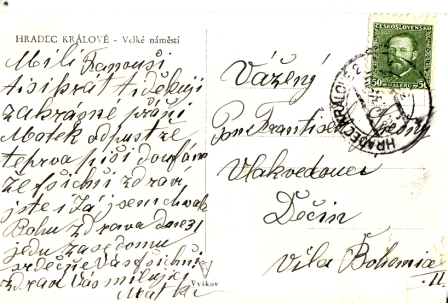 HRADEC KRÁLOVÉ - Velké náměstí
Milí Franouši
tisíkrát děkuji
za krásné přání
Matek odpust že
teprva píši doufám
že fšichni zdraví
jste i Já jsem chvak
Bohu zdráva dnes
jedu zase domu
srdečně Vás fšichni
zdraví Vás milující
Matka
Vyškov
ČESKOSLOVENSKO
50 HALÉŘŮ 50
HRADEC KRÁLOVÉ 2
Vážený
Pan František
Vlakvedouc
Děčín
Vila Bohemia
II